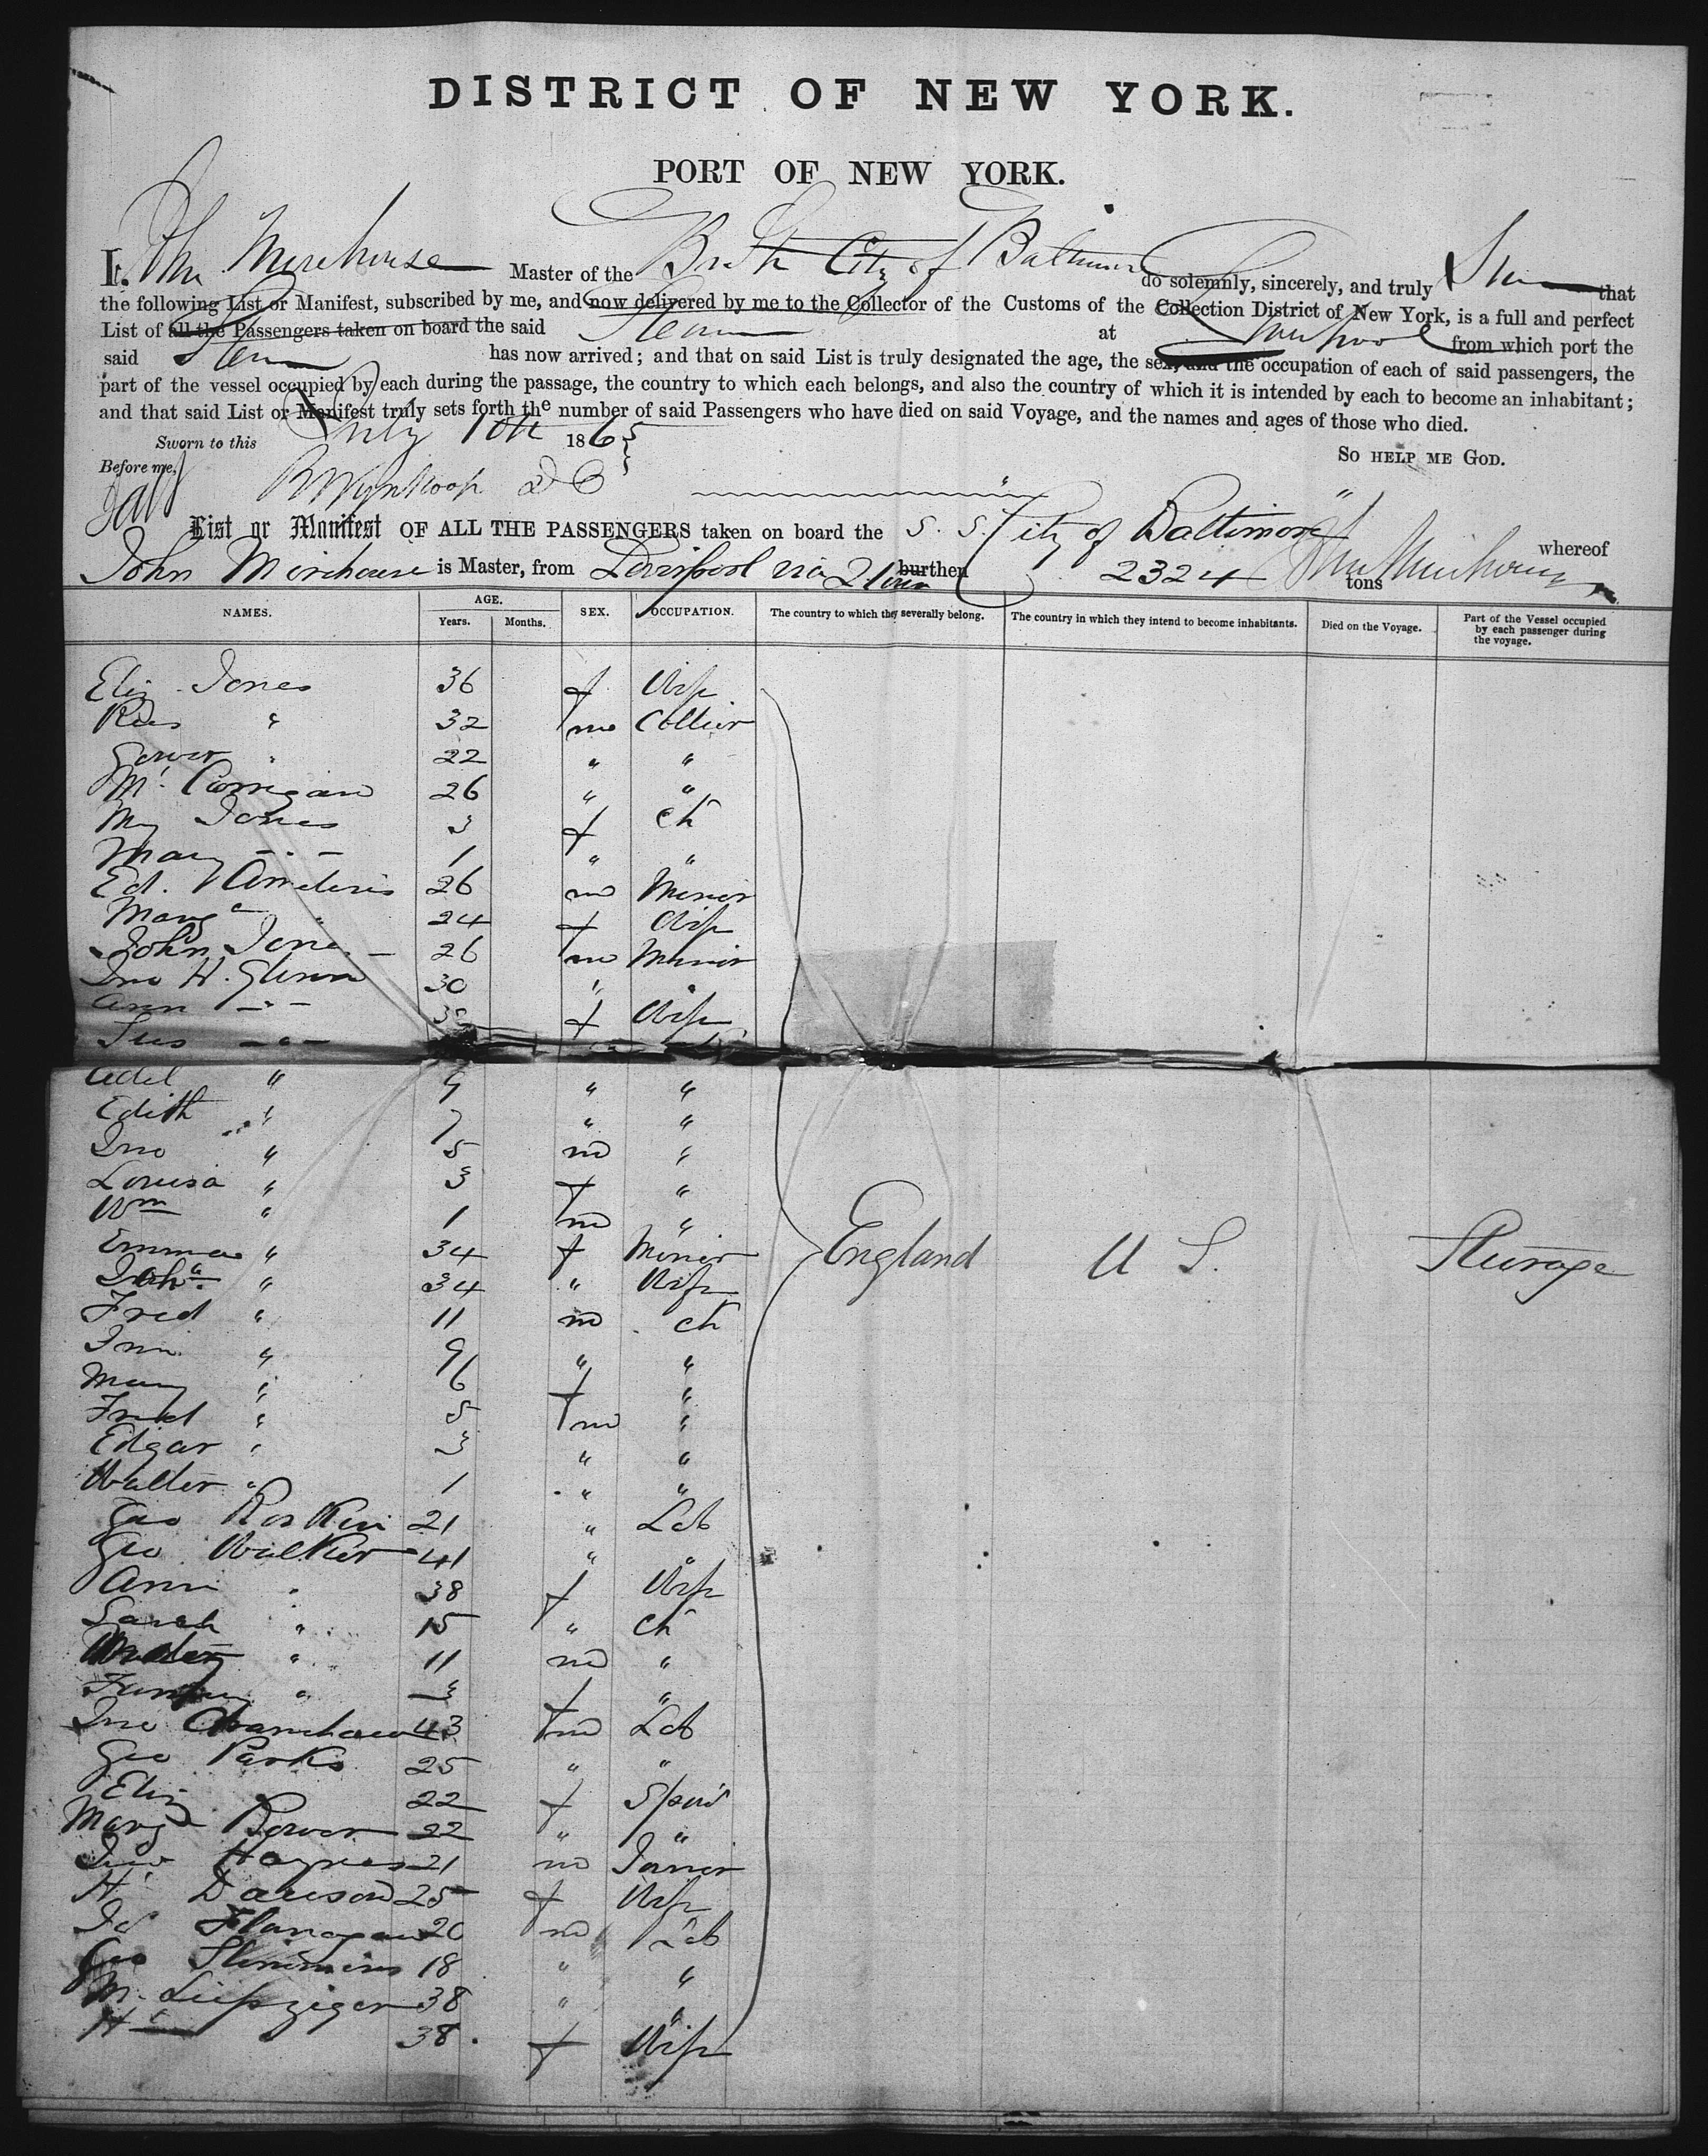 DISTRICT OF NEW YORK.
PORT OF NEW YORK.
I, Jno Mirehouse Master of the Brit Str City of Baltimore do solemnly, sincerely, and truly Swear that
the following List or Manifest, subscribed by me, and now delivered by me to the Collector of the Customs of the Collection District of New York, is a full and perfect
List of all the Passengers taken on board the said Steamer at Liverpool from which port the
said Steamer has now arrived; and that on said List is truly designated the age, the sex, and the occupation of each of said passengers, the
part of the vessel occupied by each during the passage, the country to which each belongs, and also the country of which it is intended by each to become an inhabitant;
and that said List or Manifest truly sets forth the number of said Passengers who have died on said Voyage, and the names and ages of those who died.
Sworn to this July 1865
So HELP ME GOD.
Before me,
R Wynkoop D C
List or Manifest OF ALL THE PASSENGERS taken on board the S. S. City of Baltimore whereof
John Mirehouse is Master, from Liverpool via burthen 2324 tons Jno Mirehouse
NAMES. AGE. Years. Months. SEX. OCCUPATION. The country to which they severally belong. The country in which they intend to become inhabitants. Died on the Voyage. Part of the Vessel occupied by each passenger during the voyage.
Eliz Jones 36 f Wife
Rees " 32 m Collier
Gower " 22 " "
M. Corrigan 26 " "
My Jones 3 f Ch
Mary - " - 1 " "
Ed. 26 m Minor
Marg " 24 f Wife
John Jones 26 m Minor
Jno H. Glenn 30 " "
Ann - " - f Wife
- " -
Adel " 9 " "
Edith " 7 " "
Jno " 5 m "
Louisa " 3 f "
Wm " 1 m "
Emma " 34 f Minor England U S. Steerage
" 34 " Wife
Fred " 11 m ch
" 9 " "
Mary " 6 f "
Fred " 5 m "
Edgar " 3 " "
Walter " 1 " "
Geo 21 " Lab
Geo Walker 41 " "
Ann " 38 f Wife
Sarah " 15 " ch
" 11 m "
" 3 f "
Jno 43 m Lab
Geo Parks 25 " "
Eliz 22 f Spin
Marg Bower 22 " "
Haynes 21 m
H Dawson 25 f Wife
Flanagan 20 m Lab
Geo Slimmins 18 " "
M. Liepziger 38 " "
H " 38 f Wife